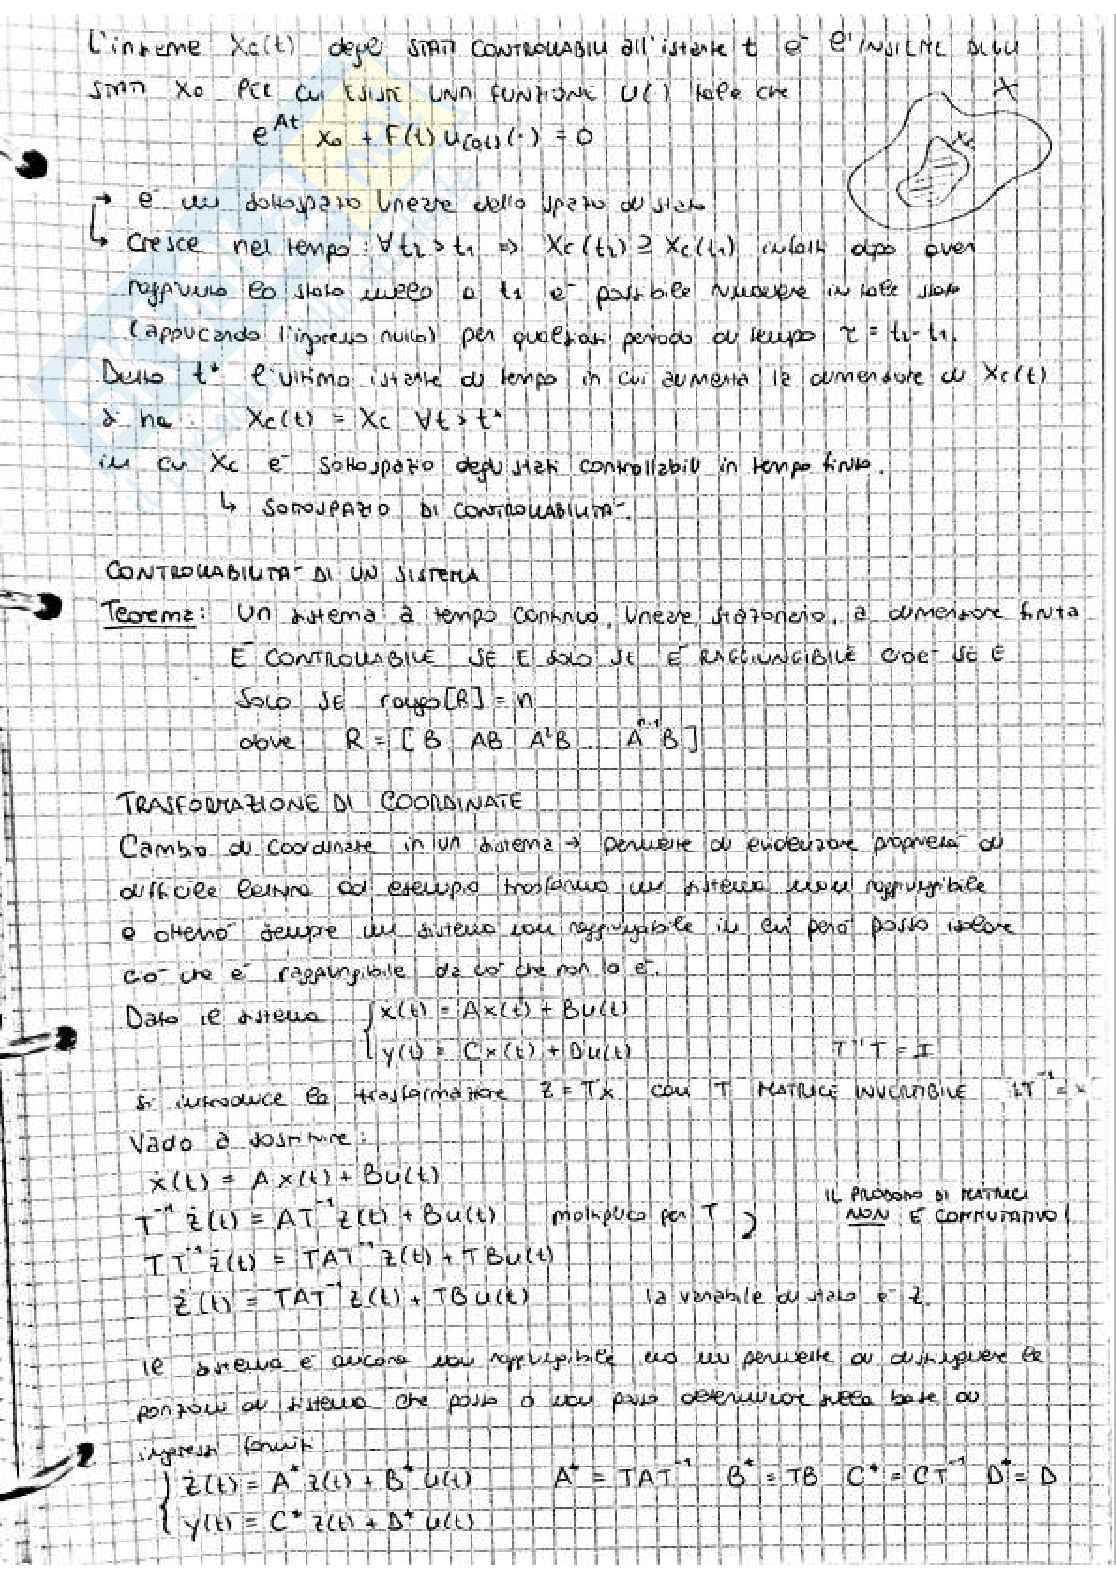 L'insieme Xc(t) degli STATI CONTROLLABILI all'istante t è l'INSIEME DEGLI
STATI X0 PER CUI ESISTE UNA FUNZIONE U() tale che
e^At x0 + F(t) U[0,t)(·) = 0
X
Xc
→ è un sottospazio lineare dello spazio di stato
↳ Cresce nel tempo: ∀t2 > t1 ⇒ Xc(t2) ⊇ Xc(t1) infatti dopo aver
raggiunto lo stato nullo a t1 è possibile rimanere in tale stato
(applicando l'ingresso nullo) per qualsiasi periodo di tempo τ = t2 - t1.
Detto t* l'ultimo istante di tempo in cui aumenta la dimensione di Xc(t)
si ha: Xc(t) = Xc ∀t > t*
in cui Xc è sottospazio degli stati controllabili in tempo finito.
↳ SOTTOSPAZIO DI CONTROLLABILITÀ.
CONTROLLABILITÀ DI UN SISTEMA
Teorema: Un sistema a tempo continuo, lineare, stazionario, a dimensione finita
È CONTROLLABILE SE E SOLO SE È RAGGIUNGIBILE CIOÈ SE E
SOLO SE rango[R] = n
dove R = [B AB A²B ... A^n-1 B]
TRASFORMAZIONE DI COORDINATE
Cambio di coordinate in un sistema → permette di evidenziare proprietà di
difficile lettura ad esempio trasformo un sistema non raggiungibile
e otterrò sempre un sistema non raggiungibile in cui però posso isolare
ciò che è raggiungibile da ciò che non lo è.
Dato il sistema { ẋ(t) = Ax(t) + Bu(t)
y(t) = Cx(t) + Du(t) T⁻¹T = I
Si introduce la trasformazione z = Tx con T MATRICE INVERTIBILE zT⁻¹ = x
Vado a sostituire:
ẋ(t) = Ax(t) + Bu(t)
T⁻¹ ż(t) = AT⁻¹z(t) + Bu(t) moltiplico per T
IL PRODOTTO DI MATRICI
NON È COMMUTATIVO!
TT⁻¹ż(t) = TAT⁻¹z(t) + TBu(t)
ż(t) = TAT⁻¹z(t) + TBu(t) la variabile di stato è z.
Il sistema è ancora non raggiungibile ma mi permette di distinguere le
porzioni di sistema che posso o non posso determinare sulla base di
ingressi forniti
{ ż(t) = A* z(t) + B* u(t) A* = TAT⁻¹ B* = TB C* = CT⁻¹ D* = D
y(t) = C* z(t) + D* u(t)